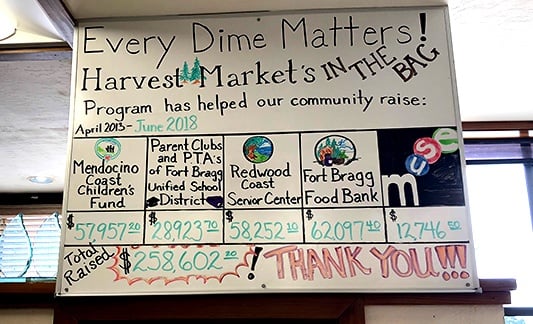 Every Dime Matters!
Harvest Market's IN THE BAG
Program has helped our community raise:
April 2013 - June 2018
Mendocino
Coast
Children's
Fund
Parent Clubs
and PTA's
of Fort Bragg
Unified School
District
Redwood
Coast
Senior Center
Fort Bragg
Food Bank
muse
$57957 20
$28923 70
$58252 10
$62,097 40
$12,746 60
Total Raised $258,602 20! THANK YOU!!!